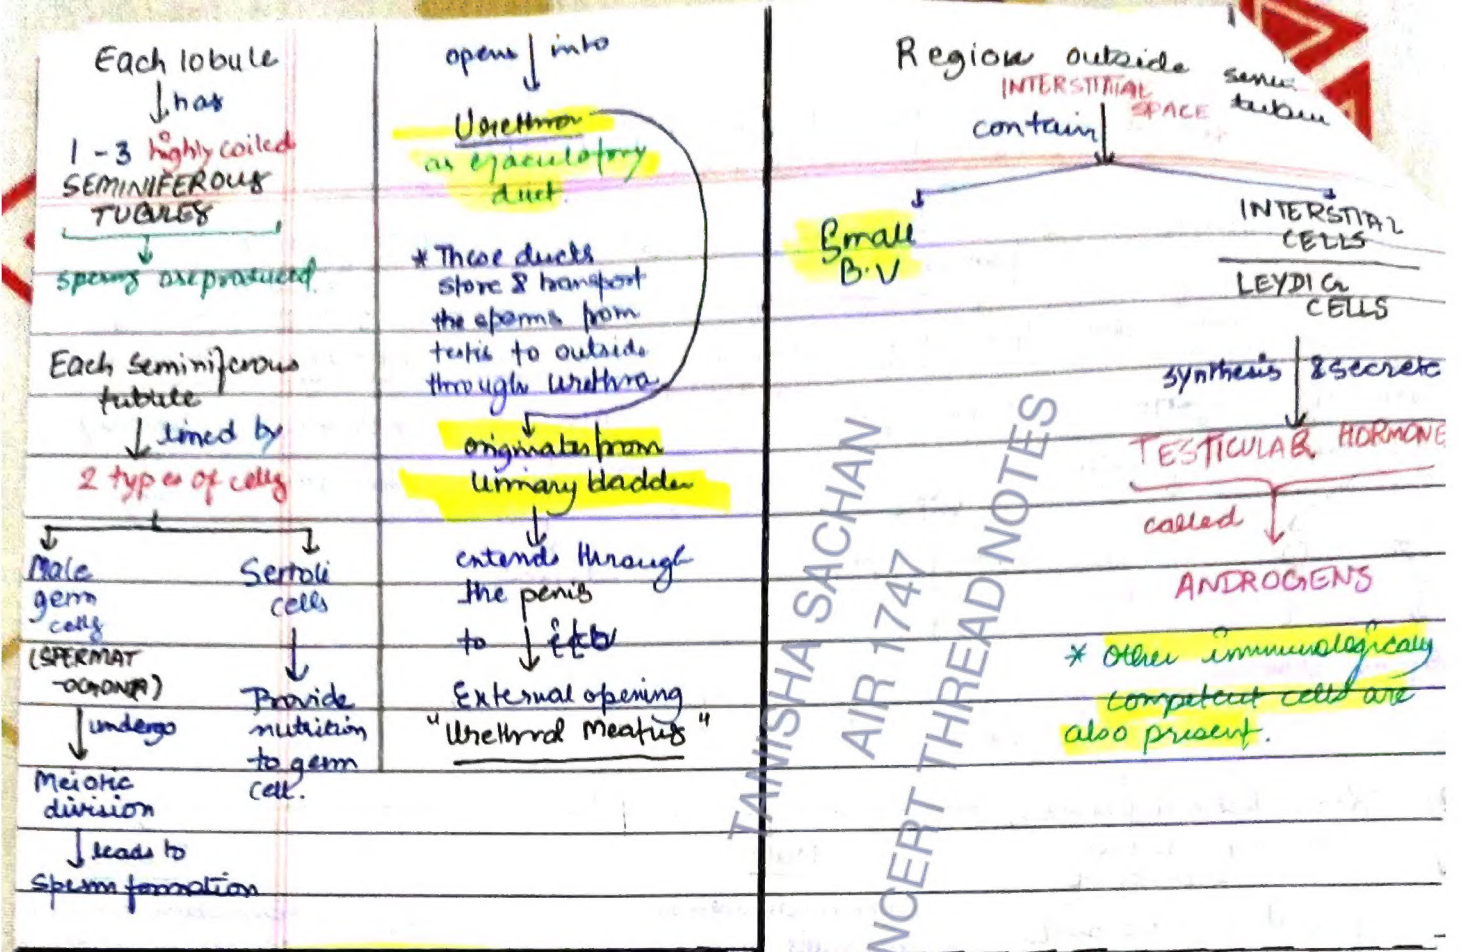 Each lobule
↓ has
1 - 3 highly coiled
SEMINIFEROUS
TUBULES
↓
sperms are produced.
Each seminiferous
tubule
↓ lined by
2 types of cells
Male
germ
cells
(SPERMAT
-OGONIA)
↓ undergo
Meiotic
division
↓ leads to
sperm formation
Sertoli
cells
↓
Provide
nutrition
to germ
cell.
opens ↓ into
Urethra
as ejaculatory
duct.
* These ducts
store & transport
the sperms from
testis to outside
through urethra
originates from
Urinary bladder
↓
extends through
the penis
to ↓ its
External opening
"Urethral Meatus"
Region outside
INTERSTITIAL
SPACE
contain
Small
B.V
INTERSTIAL
CELLS
LEYDIG
CELLS
synthesis ↓ & secrete
TESTICULAR HORMONE
called ↓
ANDROGENS
* Other immunologically
competent cells are
also present.
TANISHA SACHAN
AIR 1747
NCERT THREAD NOTES